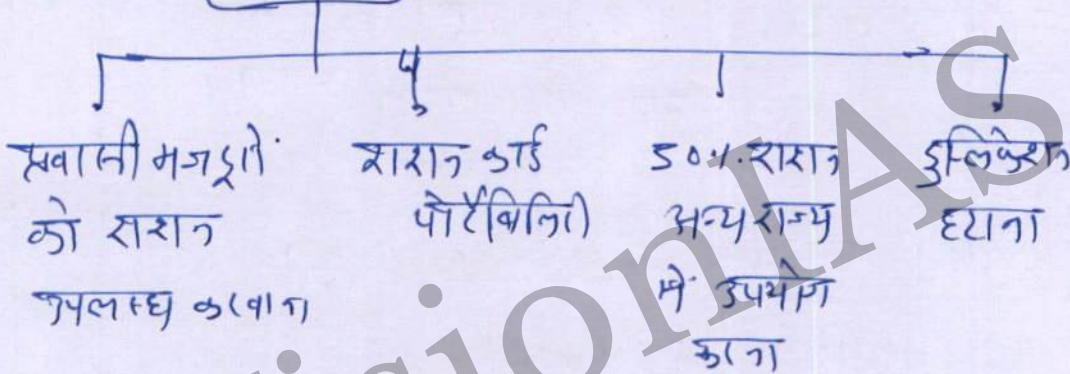 प्रवासी मजदूरों को राशन उपलब्ध करवाना
राशन कार्ड पोर्टेबिलिटी
50% राशन अन्य राज्य में उपयोग करना
डुप्लिकेशन हटाना
VisionIAS